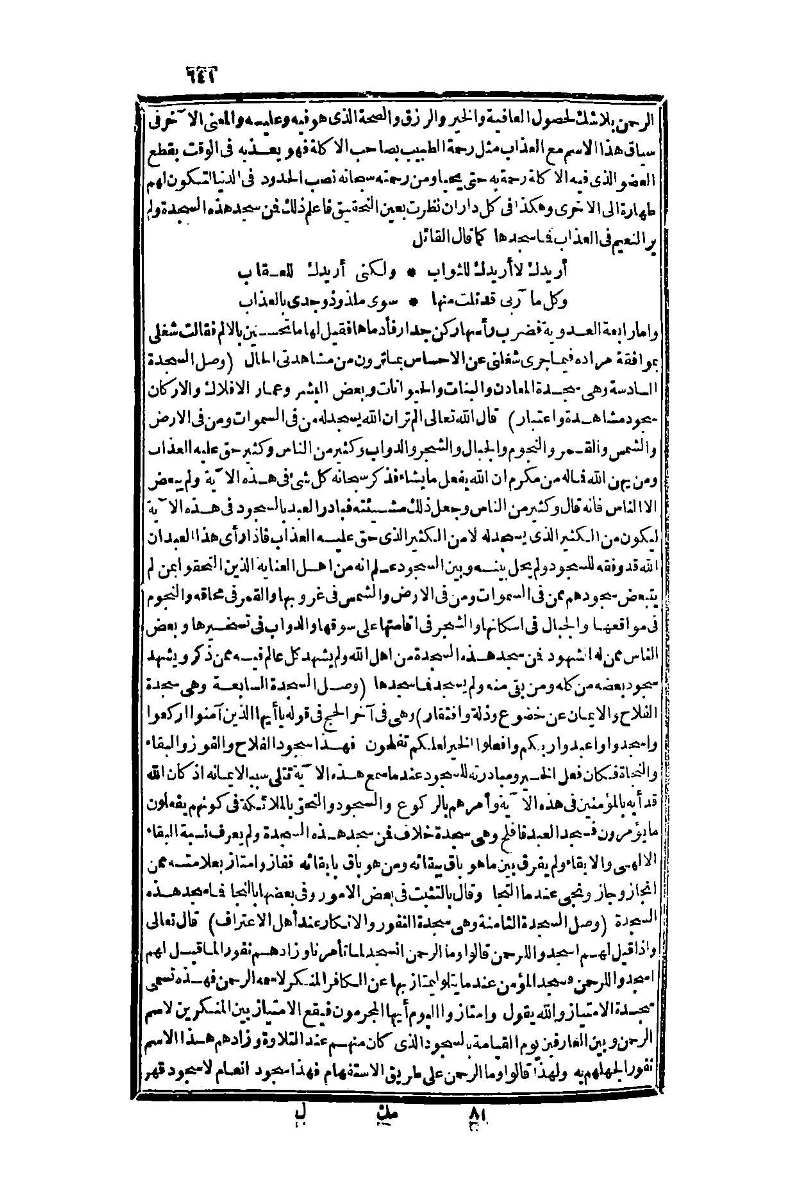 ٦٤١
الرحمن بلا شك لحصول العافية والخير والرزق والصحة الذى هو فيه وعليه والمعنى الآخر فى
سياق هذا الاسم مع العذاب مثل رحمة الطبيب بصاحب الاكلة فهو يعذبه فى الوقت بقطع
العضو الذى فيه الاكلة رحمة به حتى يحيا ومن رحمته سبحانه نصب الحدود فى الدنيا لتكون لهم
طهارة الى الاخرى وهكذا فى كل دار ان نظرت بعين التحقيق فاعلم ذلك فمن سجد هذه السجدة ولم
ير النعيم فى العذاب فما سجدها كما قال القائل
أريدك لا أريدك للثواب * ولكنى أريدك للعقاب
وكل مآربى قد نلت منها * سوى ملذوذ وجدى بالعذاب
واما رابعة العدوية فضرب رأسها ركن جدار فأدماها فقيل لها ما تحسين بالالم فقالت شغلى
بموافقة مراده فيما جرى شغلنى عن الاحساس بما ترون من شاهدتى الحال (وصل السجدة
السادسة وهى سجدة المعادن والنبات والحيوانات وبعض البشر وعمار الافلاك والاركان
سجود مشاهدة واعتبار) قال الله تعالى الم تر ان الله يسجد له من فى السموات ومن فى الارض
والشمس والقمر والنجوم والجبال والشجر والدواب وكثير من الناس وكثير حق عليه العذاب
ومن يهن الله فماله من مكرم ان الله يفعل ما يشاء فذكر سبحانه كل شئ فى هذه الآية ولم يبعض
الا الناس فانه قال وكثير من الناس وجعل ذلك مشيئته فبادر العبد بالسجود فى هذه الآية
ليكون من الكثير الذى يسجد له لا من الكثير الذى حق عليه العذاب فاذا رأى هذا العبد ان
الله قد وفقه للسجود ولم يحل بينه وبين السجود علم انه من اهل العناية الذين التحقوا بمن لم
يتبعض سجودهم ممن فى السموات ومن فى الارض والشمس فى غروبها والقمر فى محاقه والنجوم
فى مواقعها والجبال فى اسكانها والشجر فى اقامتها على سوقها والدواب فى تسخيرها وبعض
الناس ممن له الشهود فمن سجد هذه السجدة من اهل الله ولم يشهد كل عالم فيه ممن ذكر ويشهد
سجود بعضه من كله ومن بقى منه ولم يسجد فما سجدها (وصل السجدة السابعة وهى سجدة
الفلاح والايمان عن خضوع وذلة وافتقار) وهى فى آخر الحج فى قوله يا أيها الذين آمنوا اركعوا
واسجدوا واعبدوا ربكم وافعلوا الخير لعلكم تفلحون فهذا سجود الفلاح والفوز والبقاء
والنجاة فكان فعل الخير ومبادرته للسجود عندما سمع هذه الآية تتلى سببا لايمانه اذ كان الله
قد أيه بالمؤمنين فى هذه الآية وأمرهم بالركوع والسجود والتحق بالملائكة فى كونهم يفعلون
ما يؤمرون فسجد العبد فافلح وهى سجدة خلاف فمن سجد هذه السجدة ولم يعرف نسبة البقاء
الالهى والابقاء ولم يفرق بين ما هو باق ببقائه ومن هو باق بابقائه ففاز وامتاز بعلامته ممن
انحاز وجاز ونجى عندما التجا وقال بالتثبت فى بعض الامور وفى بعضها بالنجا فما سجد هذه
السجدة (وصل السجدة الثامنة وهى سجدة النفور والانكار عند أهل الاعتراف) قال تعالى
واذا قيل لهم اسجدوا للرحمن قالوا وما الرحمن انسجد لما تأمرنا وزادهم نفورا لما قيل لهم
اسجدوا للرحمن فسجد المؤمن عندما يتلو ليمتاز بها عن الكافر المنكر لاسمه الرحمن فهذه تسمى
سجدة الامتياز والله يقول وامتازوا اليوم أيها المجرمون فيقع الامتياز بين المنكرين لاسم
الرحمن وبين العارفين يوم القيامة بالسجود الذى كان منهم عند التلاوة وزادهم هذا الاسم
نفورا لجهلهم به ولهذا قالوا وما الرحمن على طريق الاستفهام فهذا سجود انعام لا سجود قهر
٨١ مك ل